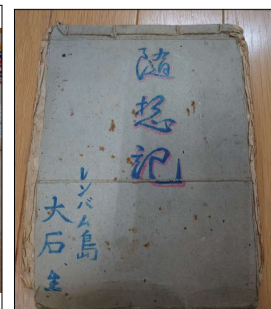 随想記
レンバム島
大石生